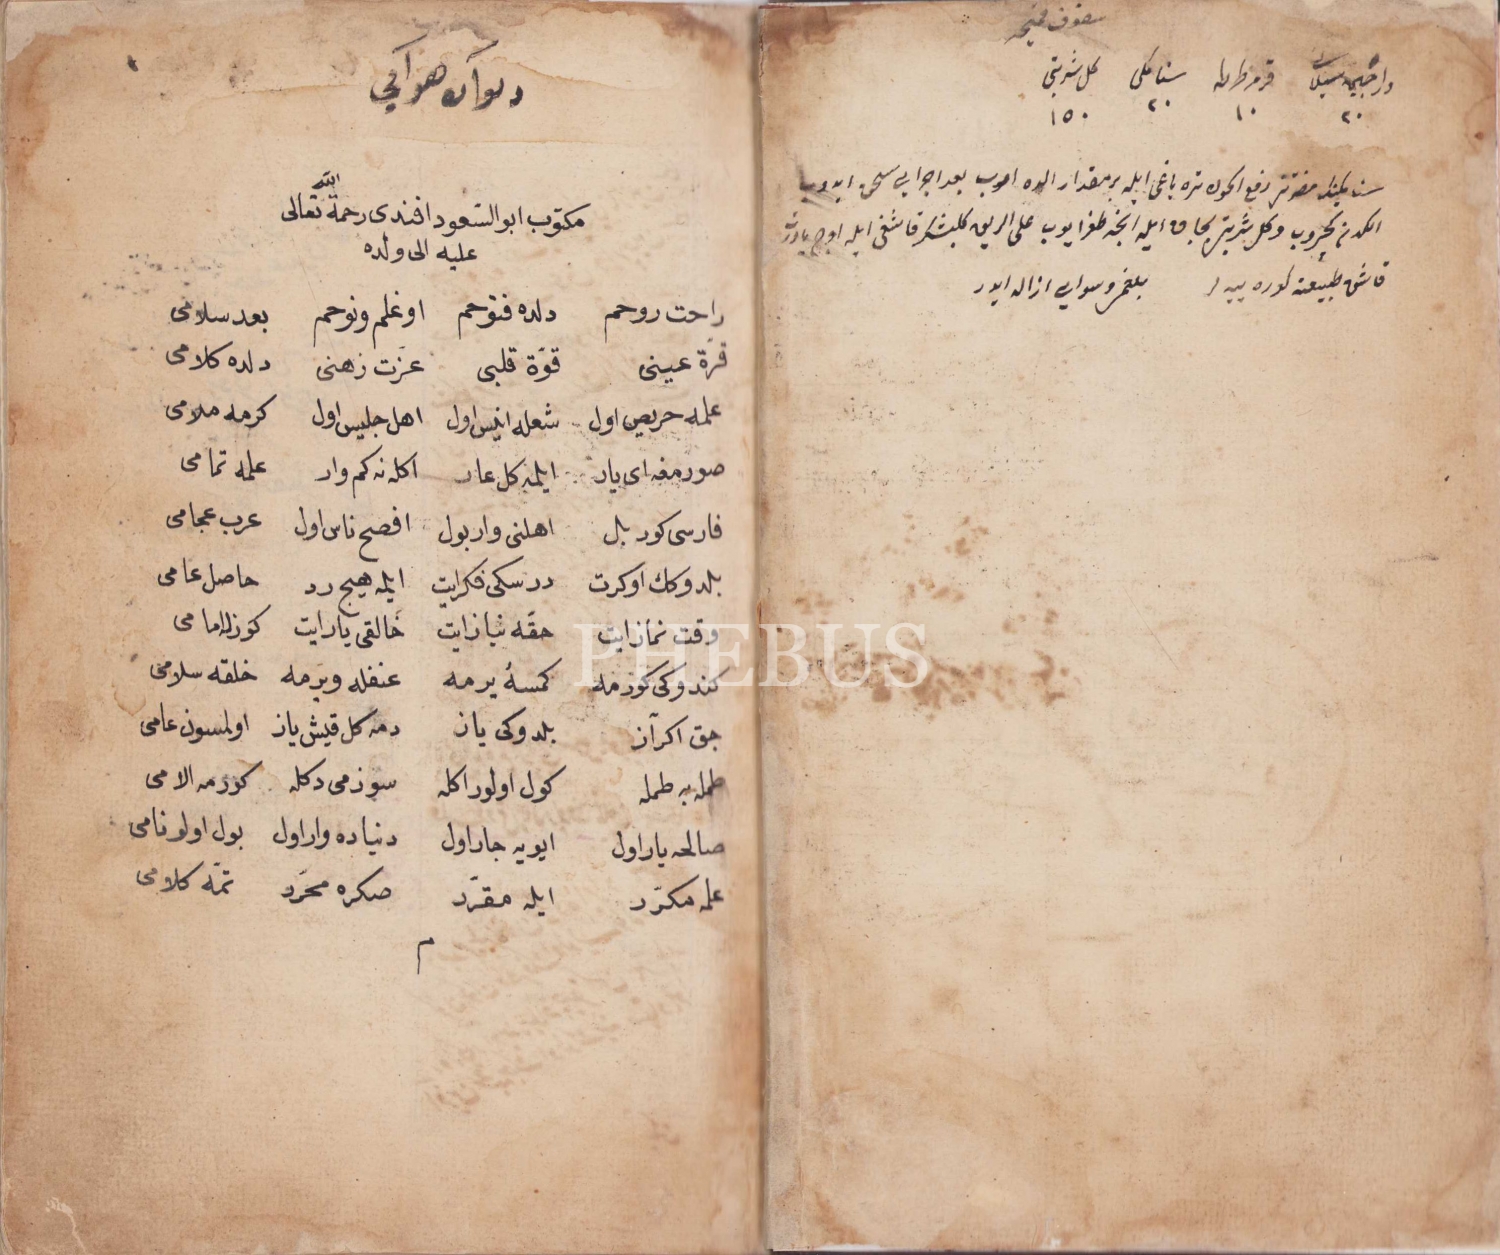 سفوف
دارچین سیلان قرمز سنامکی کل شربتی
٢٠ ١٠ ٢٠ ١٥٠
رفع ایچون تره یاغی ایله بر مقدار الده بعد اجزایی سحق ایدوب
الکدن کچروب و کل شربتی ایله علی الریق قاشغی ایله
قاشق طبیعته کوره بلغم و سودایی ازاله ایدر
دیوان هوائی
مکتوب ابو السعود افندی رحمة الله تعالی
علیه الی ولده
راحت روحم دلده فتوحم اوغلم ونوحم بعد سلامی
قرّة عینی قوّة قلبی عزّت زهنی دلده کلامی
علمه حریص اول شعله انیس اول اهل جلیس اول کرمه ملامی
صورمغه ای یار ایلمه کل عار اکله نه کم وار علمه تمامی
فارسی کور بل اهلنی وار بول افصح ناس اول عرب عجامی
بلدوکک اوکرت درسکی فکر ایت ایله هیچ رد حاصل عامی
وقت نماز ایت حقه نیاز ایت خالقی یار ایت کوزله امامی
کندوکی کورمه کمسۀ یرمه عنفله ویرمه خلقه سلامی
چق اکر آز بلدوکی یاز دمه کل قیش یاز اولسون عامی
طمله به طمله کول اولور اکله سوزمی دکله کورمه الامی
صالحه یار اول ایویه جار اول دنیاده وار اول بول اولو نامی
علمه مکرّر ایله مقرّر صکره محرّر تمّه کلامی
م
PHEBUS